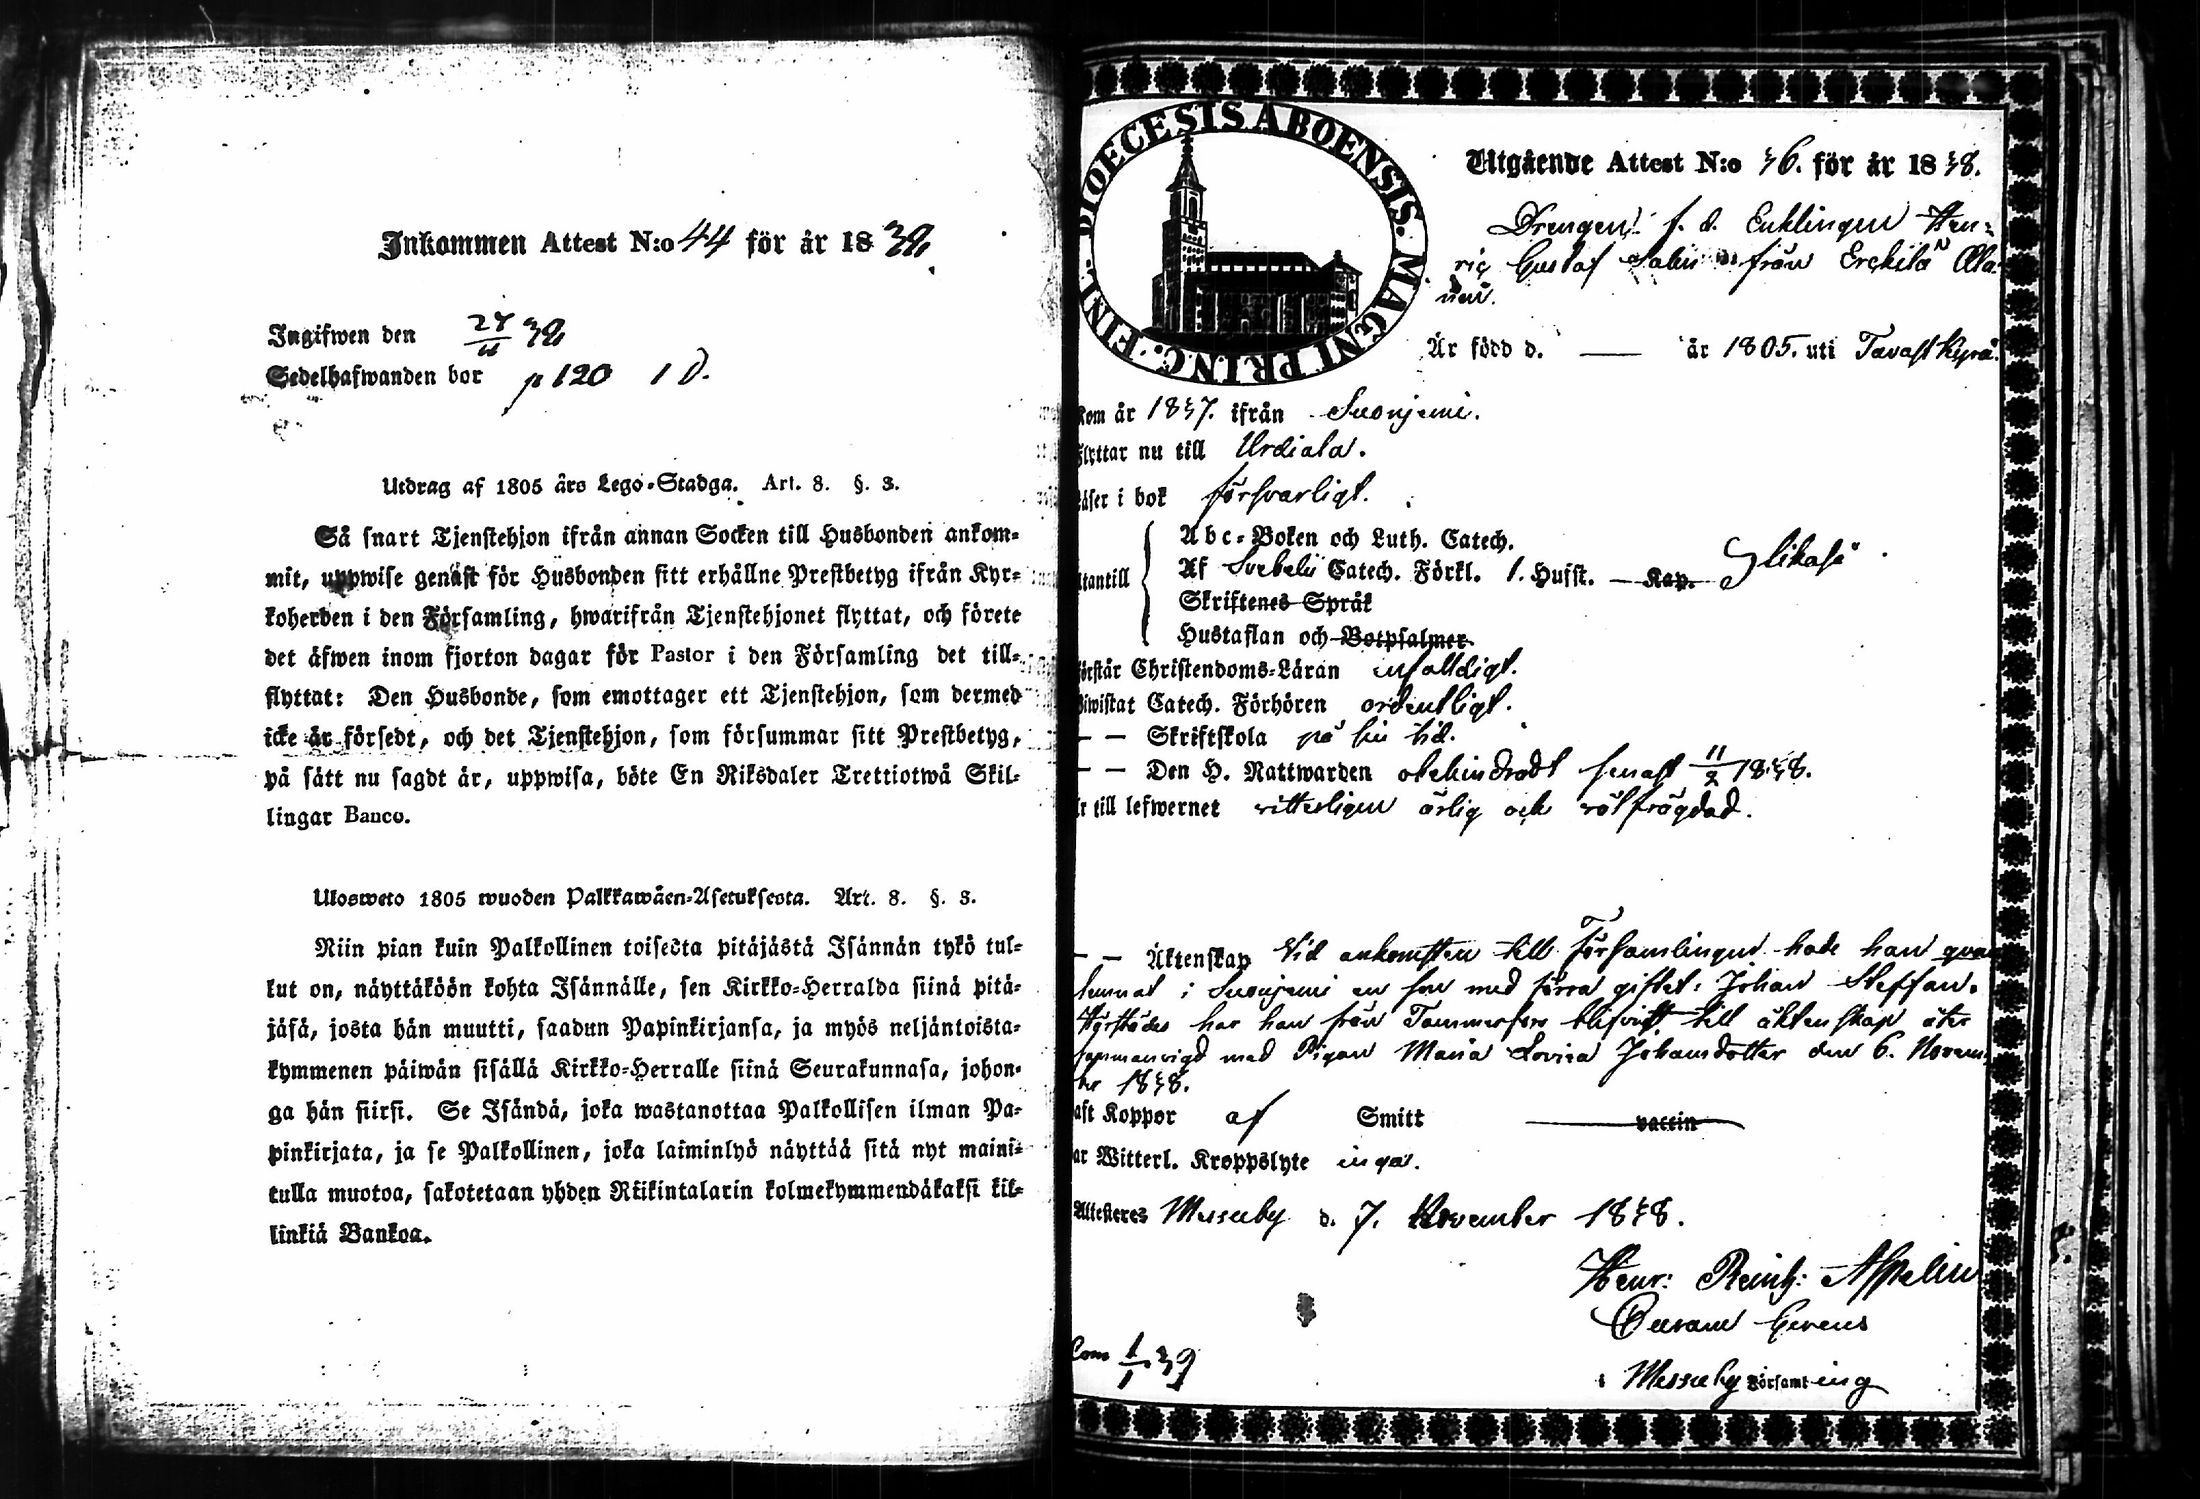 Inkommen Attest N:o 44 för år 1838
Ingifwen den 27/11 38
Sedelhafwanden bor p 120 1 D.
Utdrag af 1805 års Lego-Stadga. Art. 8. §. 3.
Så snart Tjenstehjon ifrån annan Socken till Husbonden ankom-
mit, uppwise genast för Husbonden sitt erhållne Prestbetyg ifrån Kyr-
koherden i den Församling, hwarifrån Tjenstehjonet flyttat, och förete
det äfwen inom fjorton dagar för Pastor i den Församling det till-
flyttat: Den Husbonde, som emottager ett Tjenstehjon, som dermed
icke är försedt, och det Tjenstehjon, som försummar sitt Prestbetyg,
på sätt nu sagdt är, uppwisa, böte En Riksdaler Trettiotwå Skil-
lingar Banco.
Ulosweto 1805 wuoden Palkkawäen-Asetuksesta. Art. 8. §. 3.
Niin pian kuin Palkollinen toisesta pitäjästä Isännän tykö tul-
lut on, näyttäköön kohta Isännälle, sen Kirkko-Herralda siinä pitä-
jäsä, josta hän muutti, saadun Papinkirjansa, ja myös neljäntoista-
kymmenen päiwän sisällä Kirkko-Herralle siinä Seurakunnasa, johon-
ga hän siirsi. Se Isändä, joka wastanottaa Palkollisen ilman Pa-
pinkirjata, ja se Palkollinen, joka laiminlyö näyttää sitä nyt maini-
tulla muotoa, sakotetaan yhden Riikintalarin kolmekymmendäkaksi kil-
linkiä Bankoa.
DIOECESIS ABOENSIS. MAGNI PRINC. FINL.
Utgående Attest N:o 36. för år 1838.
Drengen f. d. Enklingen Hen-
ric Gustaf från Erckilä Ala
Är född d. — år 1805. uti Tavastkyrö.
Kom år 1837. ifrån Suonjemi.
Flyttar nu till Urdiala.
Läser i bok försvarligt.
Utantill Abc-Boken och Luth. Catech.
Af Svebelii Catech. Förkl. 1. Husst. Kap.
Skriftenes Språk
Hustaflan och Botpsalmer
Förstår Christendoms-Läran enfalldigt.
Biwistat Catech. Förhören ordentligt.
— — Skriftskola på sin tid.
— — Den H. Nattwarden obehindradt senast 11/2 1838.
Är till lefwernet witterligen ärlig och wälfrägdad.
— — Äktenskap Vid ankomsten till Församlingen hade han qvar
lemnat i Suonjemi en son med förra giftet: Johan Steffan.
har han från Tammerfors till äktenskap åter
sammanvigd med Pigan Maria Lovisa Johansdotter den 6. Novem-
ber 1838.
Haft Koppor af Smitt vaccin
Har Witterl. Kroppslyte inga.
Attesteres Messuby d. 7. November 1838.
Henr: Reinh: Aspelin
i Messuby Församling
Com 1/1 39